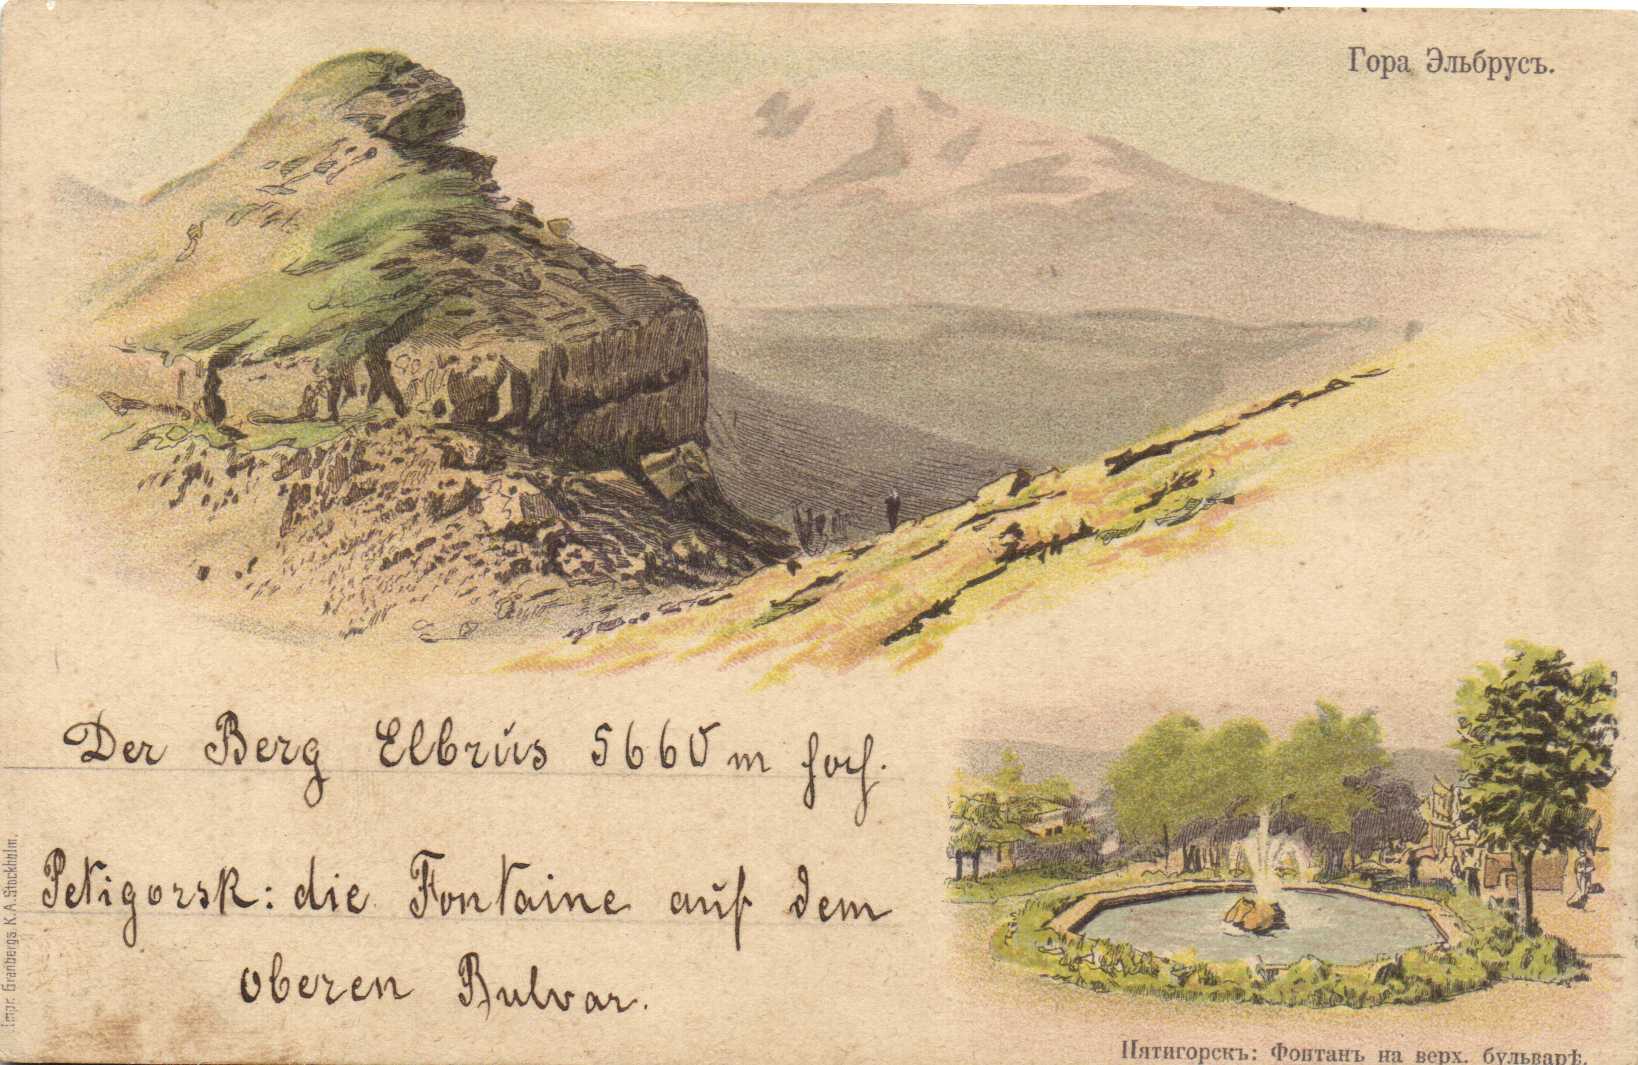 Гора Эльбрусъ.
Der Berg Elbrus 5660 m hoch.
Petigorsk: die Fontaine auf dem
oberen Bulvar.
Impr. Granbergs. K.A. Stockholm.
Пятигорскъ: Фонтанъ на верх. бульварѣ.